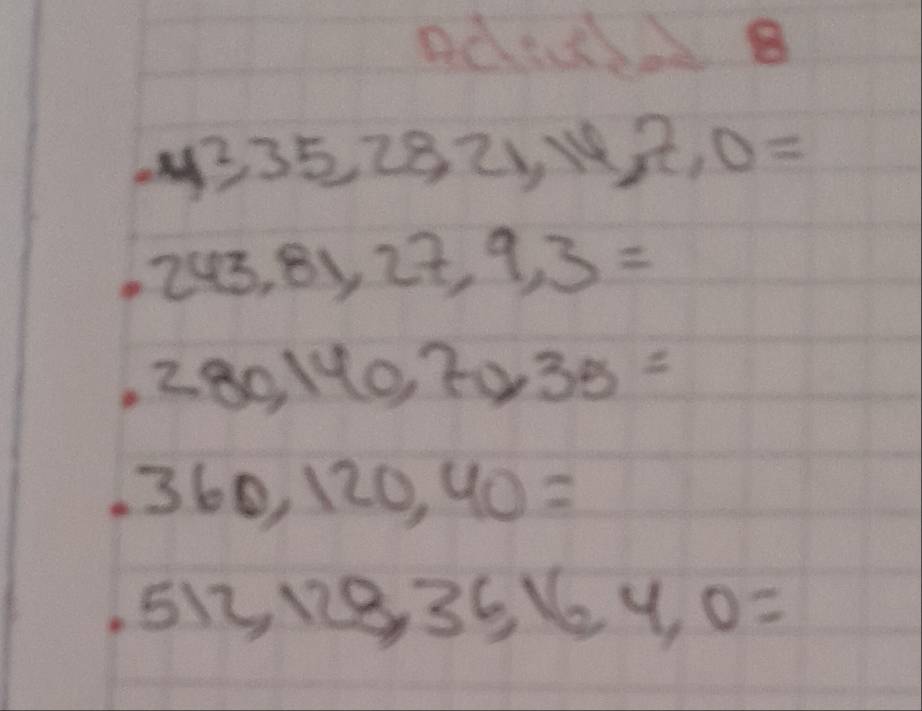 Actividad 8
.43,35,28,21,14,7,0=
.243,81,27,9,3=
.280,140,70,35=
.360,120,40=
.512,128,36,16,4,0=